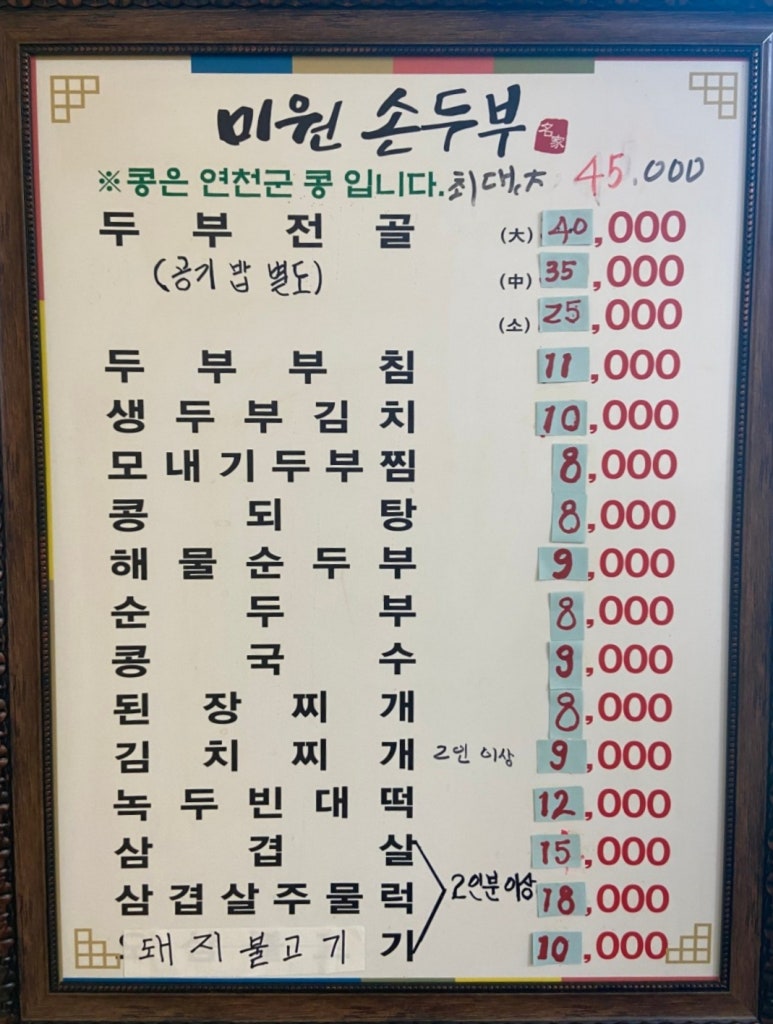 미원 손두부 名家
※콩은 연천군 콩 입니다. 최대大 45.000
두부전골 (大) 40,000
(공기밥 별도) (中) 35,000
(소) 25,000
두부부침 11,000
생두부김치 10,000
모내기두부찜 8,000
콩되탕 8,000
해물순두부 9,000
순두부 8,000
콩국수 9,000
된장찌개 8,000
김치찌개 2인 이상 9,000
녹두빈대떡 12,000
삼겹살 15,000
삼겹살주물럭 2인분 이상 18,000
돼지불고기 기 10,000